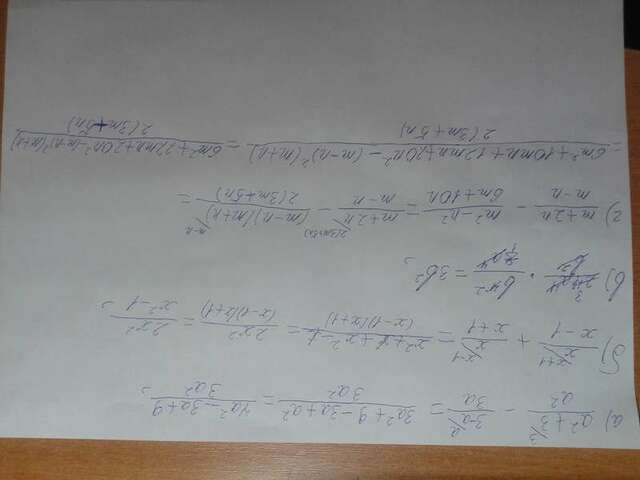 а) (a²+3)/a² - (3-a)/3a = (3a²+9-3a+a²)/3a² = (4a²-3a+9)/3a²,
б) x/(x-1) + x/(x+1) = (x²+x+x²-x)/((x-1)(x+1)) = 2x²/((x-1)(x+1)) = 2x²/(x²-1),
в) · = 3b²,
г) (m+2n)/(m-n) - (m²-n²)/(6m+10n) = (m+2n)/(m-n) - ((m-n)(m+n))/(2(3m+5n)) =
= (6m²+10mn+12mn+20n²-(m-n)²(m+n))/(2(3m+5n)) = (6m²+22mn+20n²-(m-n)²(m+n))/(2(3m+5n))